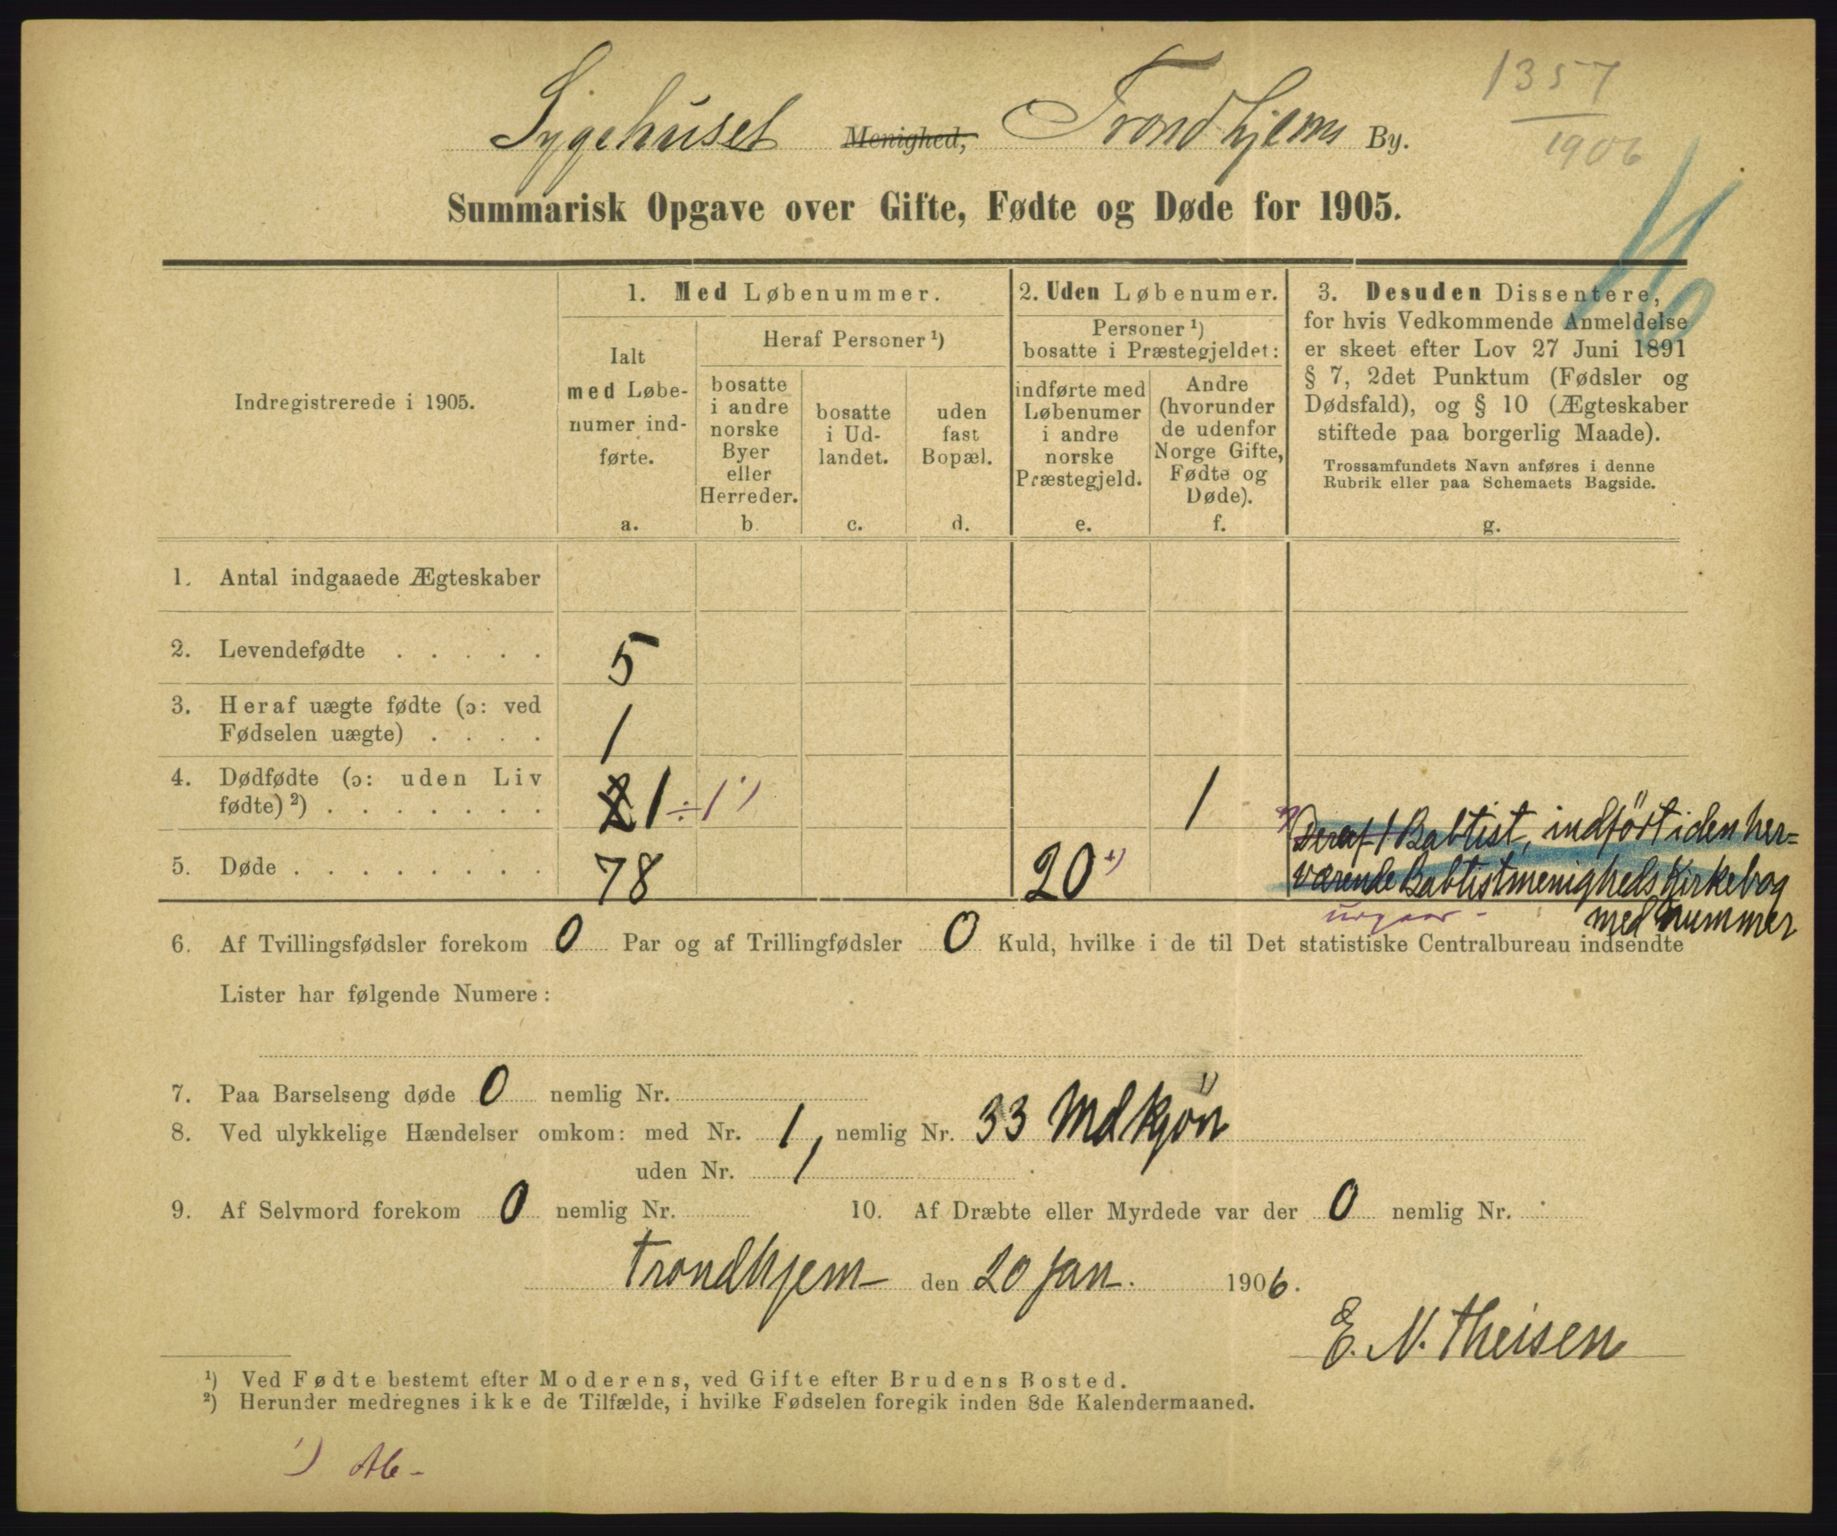 1357
1906
Sygehuset Menighed, Trondhjems By.
Summarisk Opgave over Gifte, Fødte og Døde for 1905.
Indregistrerede i 1905.
1. Med Løbenummer.
Ialt
med Løbe-
numer ind-
førte.
a.
Heraf Personer ¹)
bosatte
i andre
norske
Byer
eller
Herreder.
b
bosatte
i Ud-
landet.
c.
uden
fast
Bopæl.
d.
2. Uden Løbenumer.
Personer ¹)
bosatte i Præstegjeldet:
indførte med
Løbenumer
i andre
norske
Præstegjeld.
e.
Andre
(hvorunder
de udenfor
Norge Gifte,
Fødte og
Døde).
f.
3. Desuden Dissentere,
for hvis Vedkommende Anmeldelse
er skeet efter Lov 27 Juni 1891
§ 7, 2det Punktum (Fødsler og
Dødsfald), og § 10 (Ægteskaber
stiftede paa borgerlig Maade).
Trossamfundets Navn anføres i denne
Rubrik eller paa Schemaets Bagside.
g.
1. Antal indgaaede Ægteskaber
2. Levendefødte . . . . . 5
3. Heraf uægte fødte (ɔ: ved
Fødselen uægte) . . . . 1
4. Dødfødte (ɔ: uden Liv
fødte) ²) . . . . . . . 1 ÷ 1 ¹) 1
5. Døde . . . . . . . . 78 20 ⁺)
Deraf 1 Babtist, indført i den her=
værende Babtistmenigheds Kirkebog
med nummer
udgaar -
6. Af Tvillingsfødsler forekom 0 Par og af Trillingfødsler 0 Kuld, hvilke i de til Det statistiske Centralbureau indsendte
Lister har følgende Numere:
7. Paa Barselseng døde 0 nemlig Nr.
8. Ved ulykkelige Hændelser omkom: med Nr. 1, nemlig Nr. 33 Mdkjøn ¹)
uden Nr. 1
9. Af Selvmord forekom 0 nemlig Nr.
10. Af Dræbte eller Myrdede var der 0 nemlig Nr.
Trondhjem den 20 Jan. 1906.
E. N. Theisen
¹) Ved Fødte bestemt efter Moderens, ved Gifte efter Brudens Bosted.
²) Herunder medregnes ikke de Tilfælde, i hvilke Fødselen foregik inden 8de Kalendermaaned.